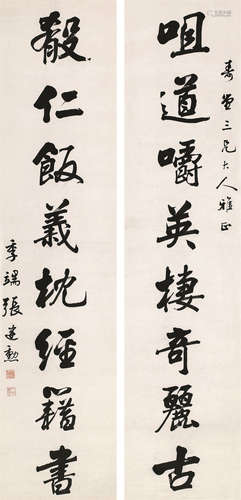 寿三兄大人雅正
咀道嚼英棲奇麗古
殽仁飯義枕經籍書
季端張建勳